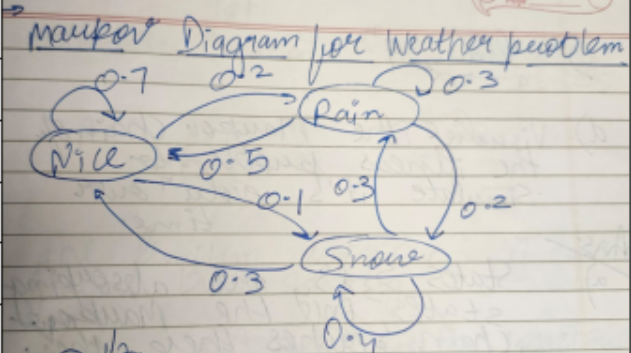 Markov Diagram for Weather problem
0.7
0.2
Rain
0.3
Nice
0.5
0.1
0.3
0.2
Snow
0.3
0.4